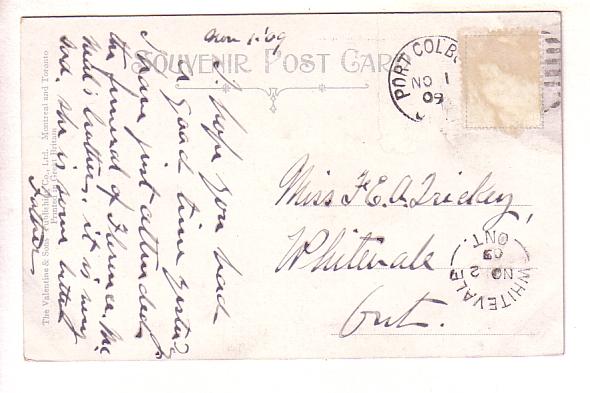 SOUVENIR POST CAR
Nov 1. '09
I hope you had
a good time yester?
I have just attended
the funeral of Florence Mc
brother, it is very
she is some better
Father
Miss F. E. A. Trickey,
Whitevale
Ont.
PORT COLBO
NO 1
09
WHITEVALE
NO 2
09
ONT.
The Valentine & Sons Publishing Co., Ltd. Montreal and Toronto
Printed in Great Britain